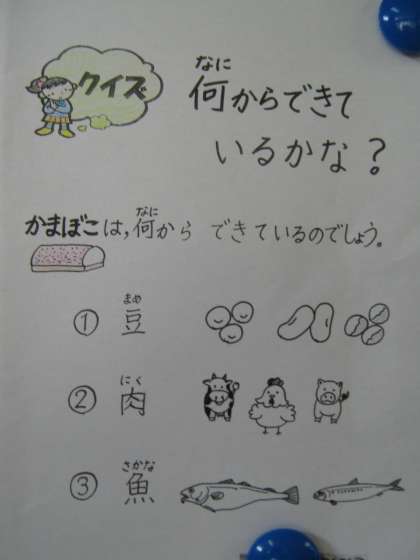 クイズ
なに
何からできて
いるかな？
なに
かまぼこは,何から できているのでしょう。
まめ
① 豆
にく
② 肉
さかな
③ 魚